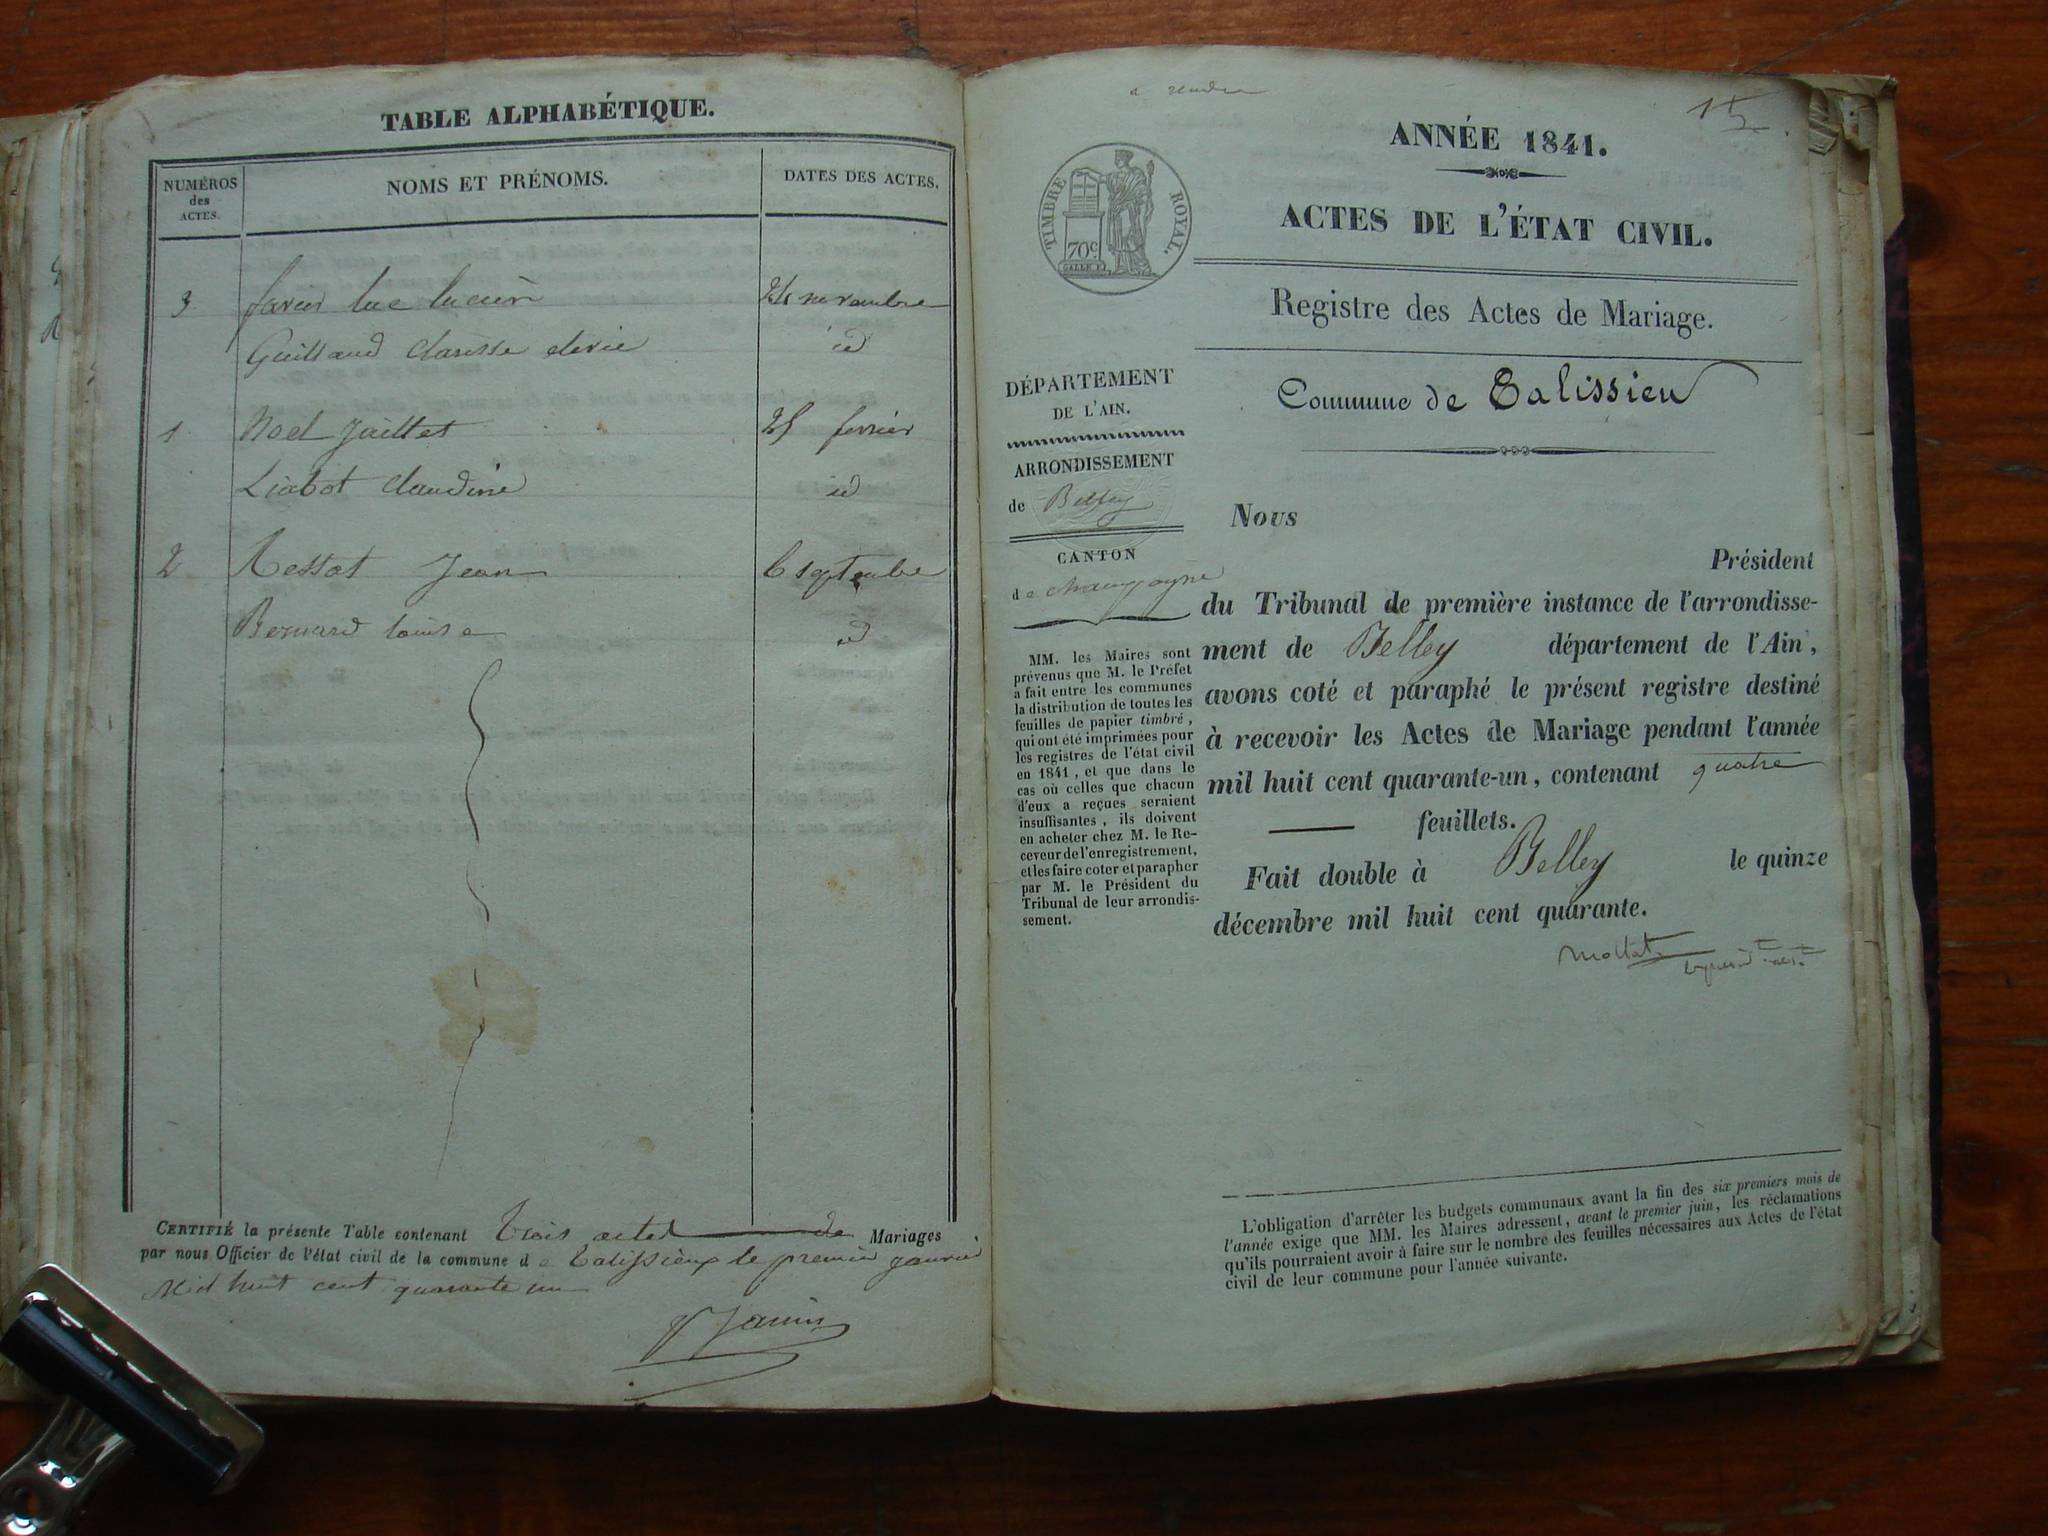 TABLE ALPHABÉTIQUE.
NUMÉROS des ACTES. NOMS ET PRÉNOMS. DATES DES ACTES.
3 favier luc lucien 24 novembre
Guillaud Clarisse id
1 Noel Juillet 25 fevrier
Liabot Claudine id
2 Tessot Jean 6 septembre
Bernard louise id
CERTIFIÉ la présente Table contenant trois actes de Mariages
par nous Officier de l'état civil de la commune de Talissieux le premier janvier
Mil huit cent quarante un
Janin
ANNÉE 1841.
TIMBRE ROYAL.
70c
ACTES DE L'ÉTAT CIVIL.
Registre des Actes de Mariage.
Commune de Talissieu
DÉPARTEMENT
DE L'AIN.
ARRONDISSEMENT
de Belley
CANTON
de champagne
MM. les Maires sont
prévenus que M. le Préfet
a fait entre les communes
la distribution de toutes les
feuilles de papier timbré,
qui ont été imprimées pour
les registres de l'état civil
en 1841, et que dans le
cas où celles que chacun
d'eux a reçues seraient
insuffisantes, ils doivent
en acheter chez M. le Re-
ceveur de l'enregistrement,
et les faire coter et parapher
par M. le Président du
Tribunal de leur arrondis-
sement.
Nous
Président
du Tribunal de première instance de l'arrondisse-
ment de Belley département de l'Ain,
avons coté et paraphé le présent registre destiné
à recevoir les Actes de Mariage pendant l'année
mil huit cent quarante-un, contenant quatre
feuillets.
Fait double à Belley le quinze
décembre mil huit cent quarante.
L'obligation d'arrêter les budgets communaux avant la fin des six premiers mois de
l'année exige que MM. les Maires adressent, avant le premier juin, les réclamations
qu'ils pourraient avoir à faire sur le nombre des feuilles nécessaires aux Actes de l'état
civil de leur commune pour l'année suivante.